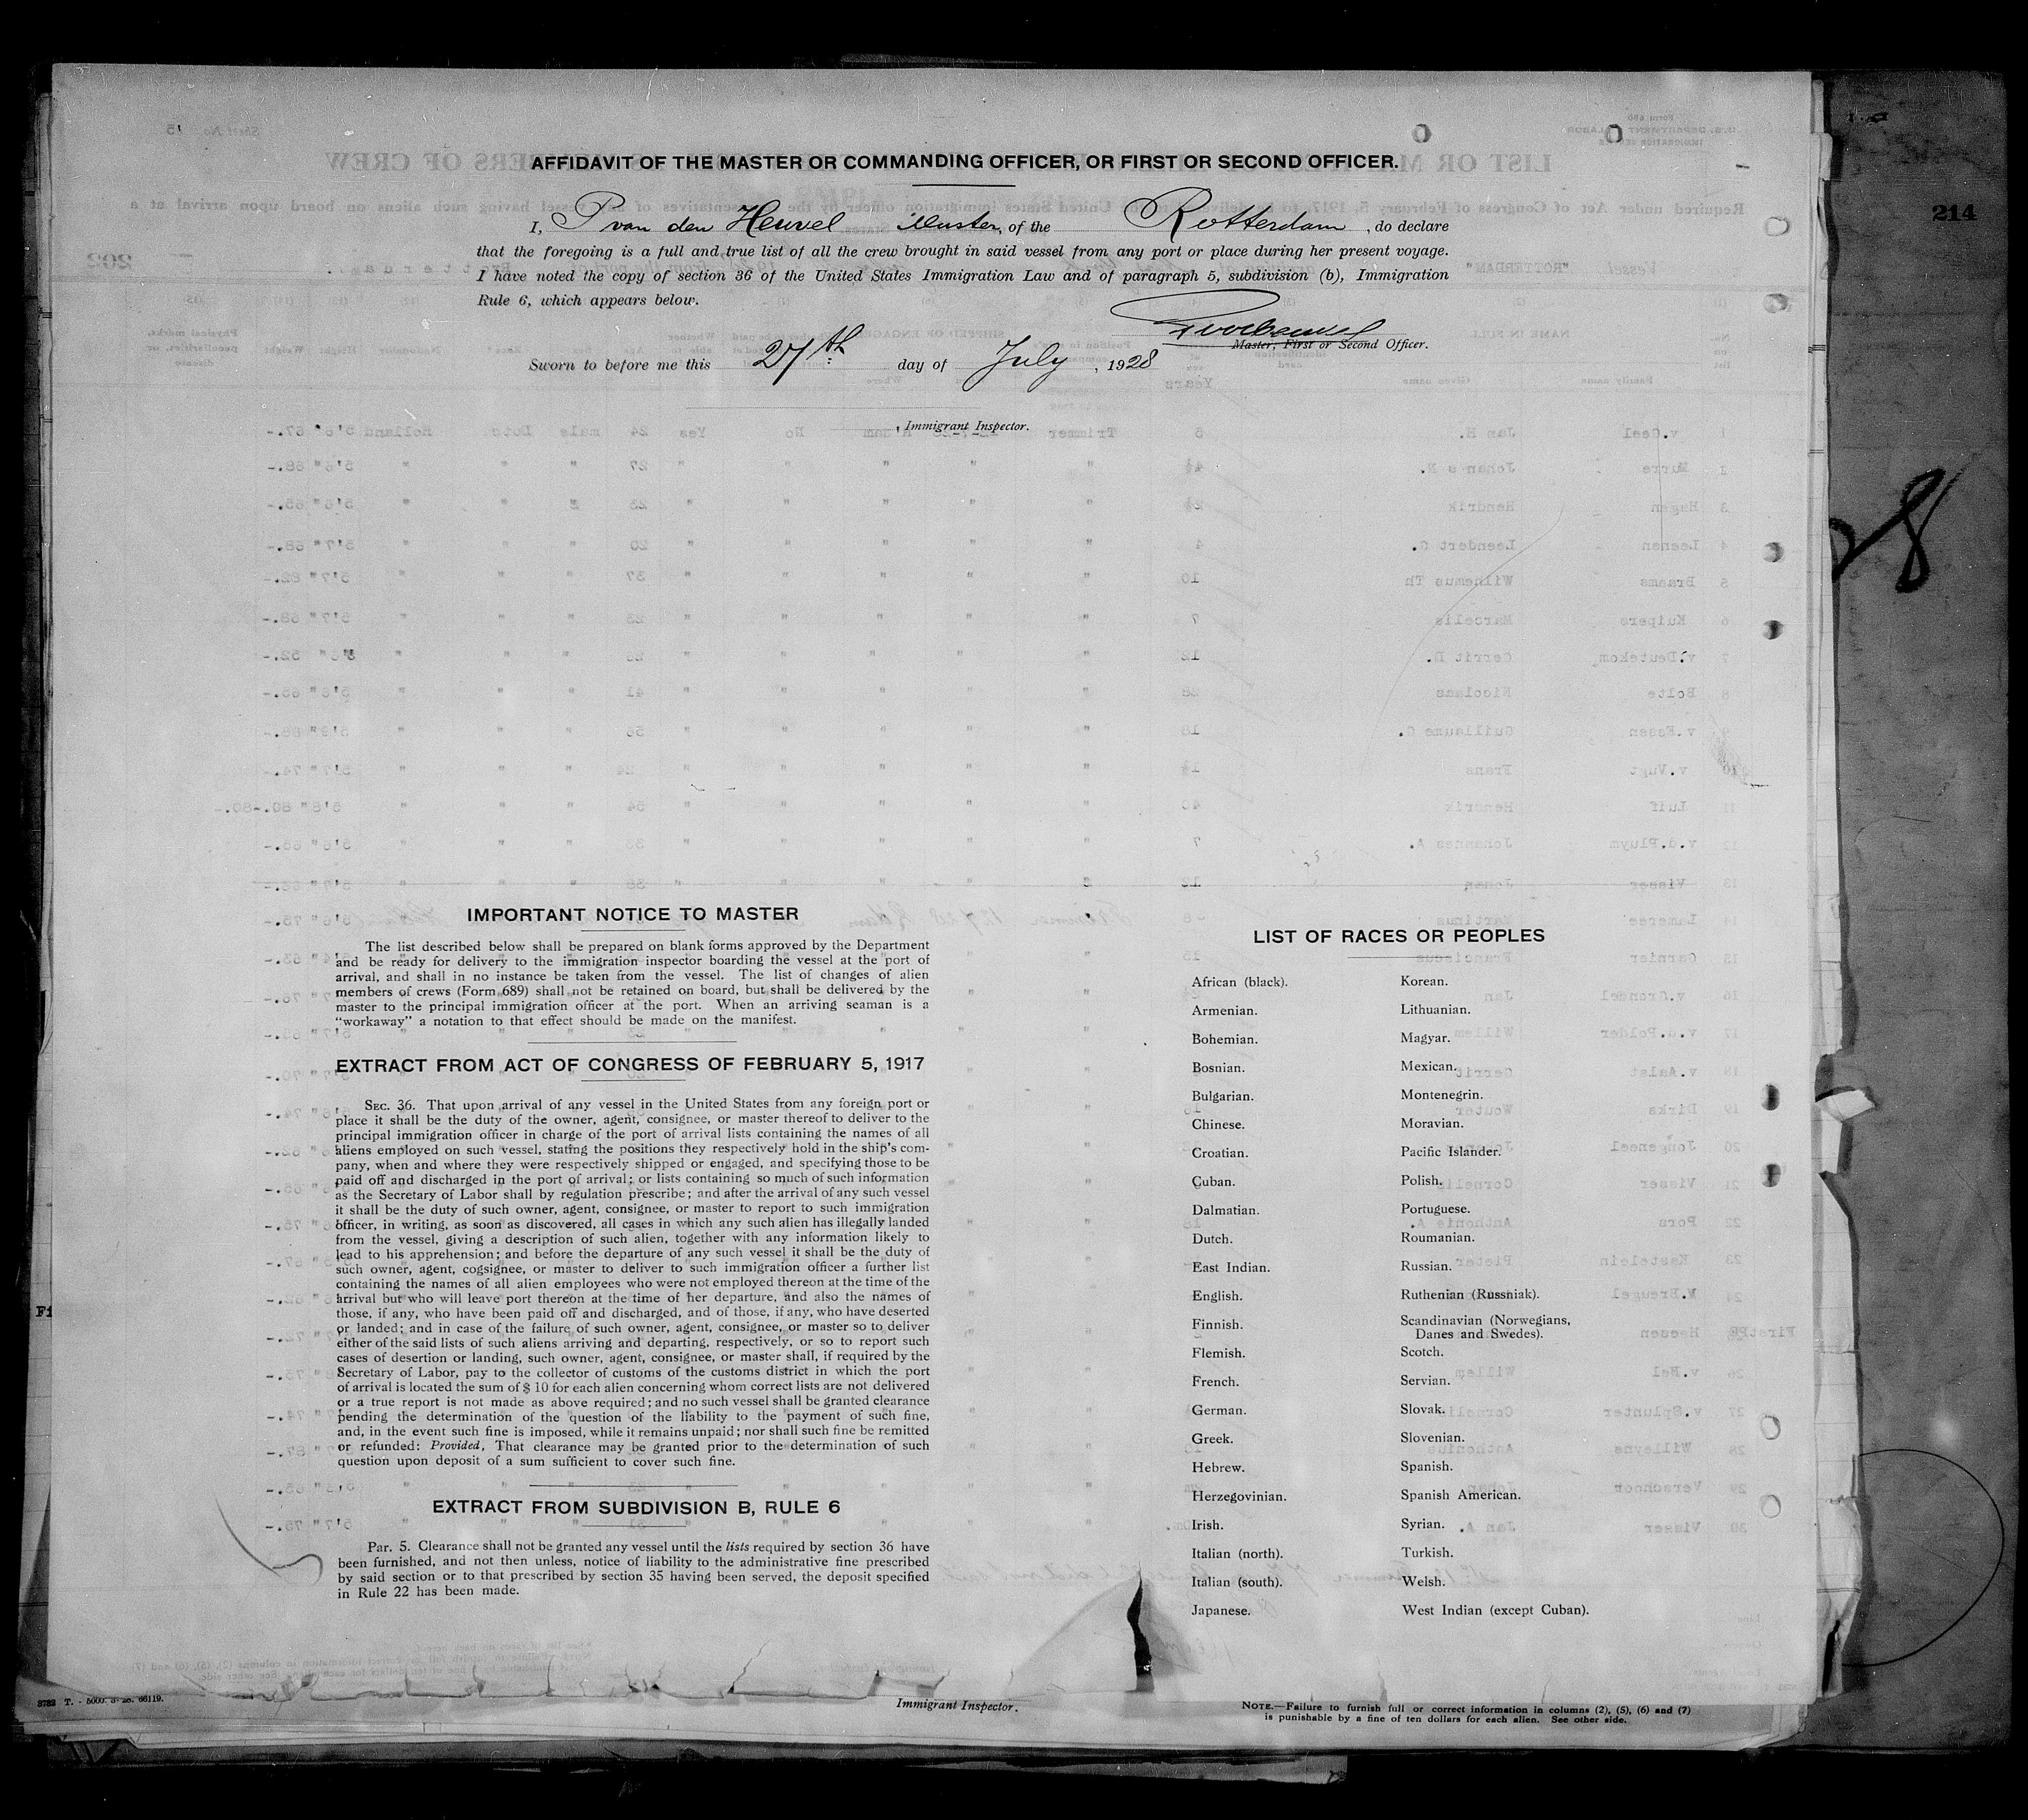 214
AFFIDAVIT OF THE MASTER OR COMMANDING OFFICER, OR FIRST OR SECOND OFFICER.
I, P van den Heuvel Master, of the Rotterdam, do declare
that the foregoing is a full and true list of all the crew brought in said vessel from any port or place during her present voyage.
I have noted the copy of section 36 of the United States Immigration Law and of paragraph 5, subdivision (b), Immigration
Rule 6, which appears below.
Master, First or Second Officer.
Sworn to before me this 27th day of July, 1928
, Immigrant Inspector.
IMPORTANT NOTICE TO MASTER
The list described below shall be prepared on blank forms approved by the Department
and be ready for delivery to the immigration inspector boarding the vessel at the port of
arrival, and shall in no instance be taken from the vessel. The list of changes of alien
members of crews (Form 689) shall not be retained on board, but shall be delivered by the
master to the principal immigration officer at the port. When an arriving seaman is a
“workaway” a notation to that effect should be made on the manifest.
EXTRACT FROM ACT OF CONGRESS OF FEBRUARY 5, 1917
SEC. 36. That upon arrival of any vessel in the United States from any foreign port or
place it shall be the duty of the owner, agent, consignee, or master thereof to deliver to the
principal immigration officer in charge of the port of arrival lists containing the names of all
aliens employed on such vessel, stating the positions they respectively hold in the ship's com-
pany, when and where they were respectively shipped or engaged, and specifying those to be
paid off and discharged in the port of arrival; or lists containing so much of such information
as the Secretary of Labor shall by regulation prescribe; and after the arrival of any such vessel
it shall be the duty of such owner, agent, consignee, or master to report to such immigration
officer, in writing, as soon as discovered, all cases in which any such alien has illegally landed
from the vessel, giving a description of such alien, together with any information likely to
lead to his apprehension; and before the departure of any such vessel it shall be the duty of
such owner, agent, cogsignee, or master to deliver to such immigration officer a further list
containing the names of all alien employees who were not employed thereon at the time of the
arrival but who will leave port thereon at the time of her departure, and also the names of
those, if any, who have been paid off and discharged, and of those, if any, who have deserted
or landed; and in case of the failure of such owner, agent, consignee, or master so to deliver
either of the said lists of such aliens arriving and departing, respectively, or so to report such
cases of desertion or landing, such owner, agent, consignee, or master shall, if required by the
Secretary of Labor, pay to the collector of customs of the customs district in which the port
of arrival is located the sum of $ 10 for each alien concerning whom correct lists are not delivered
or a true report is not made as above required; and no such vessel shall be granted clearance
pending the determination of the question of the liability to the payment of such fine,
and, in the event such fine is imposed, while it remains unpaid; nor shall such fine be remitted
or refunded: Provided, That clearance may be granted prior to the determination of such
question upon deposit of a sum sufficient to cover such fine.
EXTRACT FROM SUBDIVISION B, RULE 6
Par. 5. Clearance shall not be granted any vessel until the lists required by section 36 have
been furnished, and not then unless, notice of liability to the administrative fine prescribed
by said section or to that prescribed by section 35 having been served, the deposit specified
in Rule 22 has been made.
LIST OF RACES OR PEOPLES
African (black).
Armenian.
Bohemian.
Bosnian.
Bulgarian.
Chinese.
Croatian.
Cuban.
Dalmatian.
Dutch.
East Indian.
English.
Finnish.
Flemish.
French.
German.
Greek.
Hebrew.
Herzegovinian.
Irish.
Italian (north).
Italian (south).
Japanese.
Korean.
Lithuanian.
Magyar.
Mexican.
Montenegrin.
Moravian.
Pacific Islander.
Polish.
Portuguese.
Roumanian.
Russian.
Ruthenian (Russniak).
Scandinavian (Norwegians,
Danes and Swedes).
Scotch.
Servian.
Slovak.
Slovenian.
Spanish.
Spanish American.
Syrian.
Turkish.
Welsh.
West Indian (except Cuban).
Immigrant Inspector.
NOTE.—Failure to furnish full or correct information in columns (2), (5), (6) and (7)
is punishable by a fine of ten dollars for each alien. See other side.